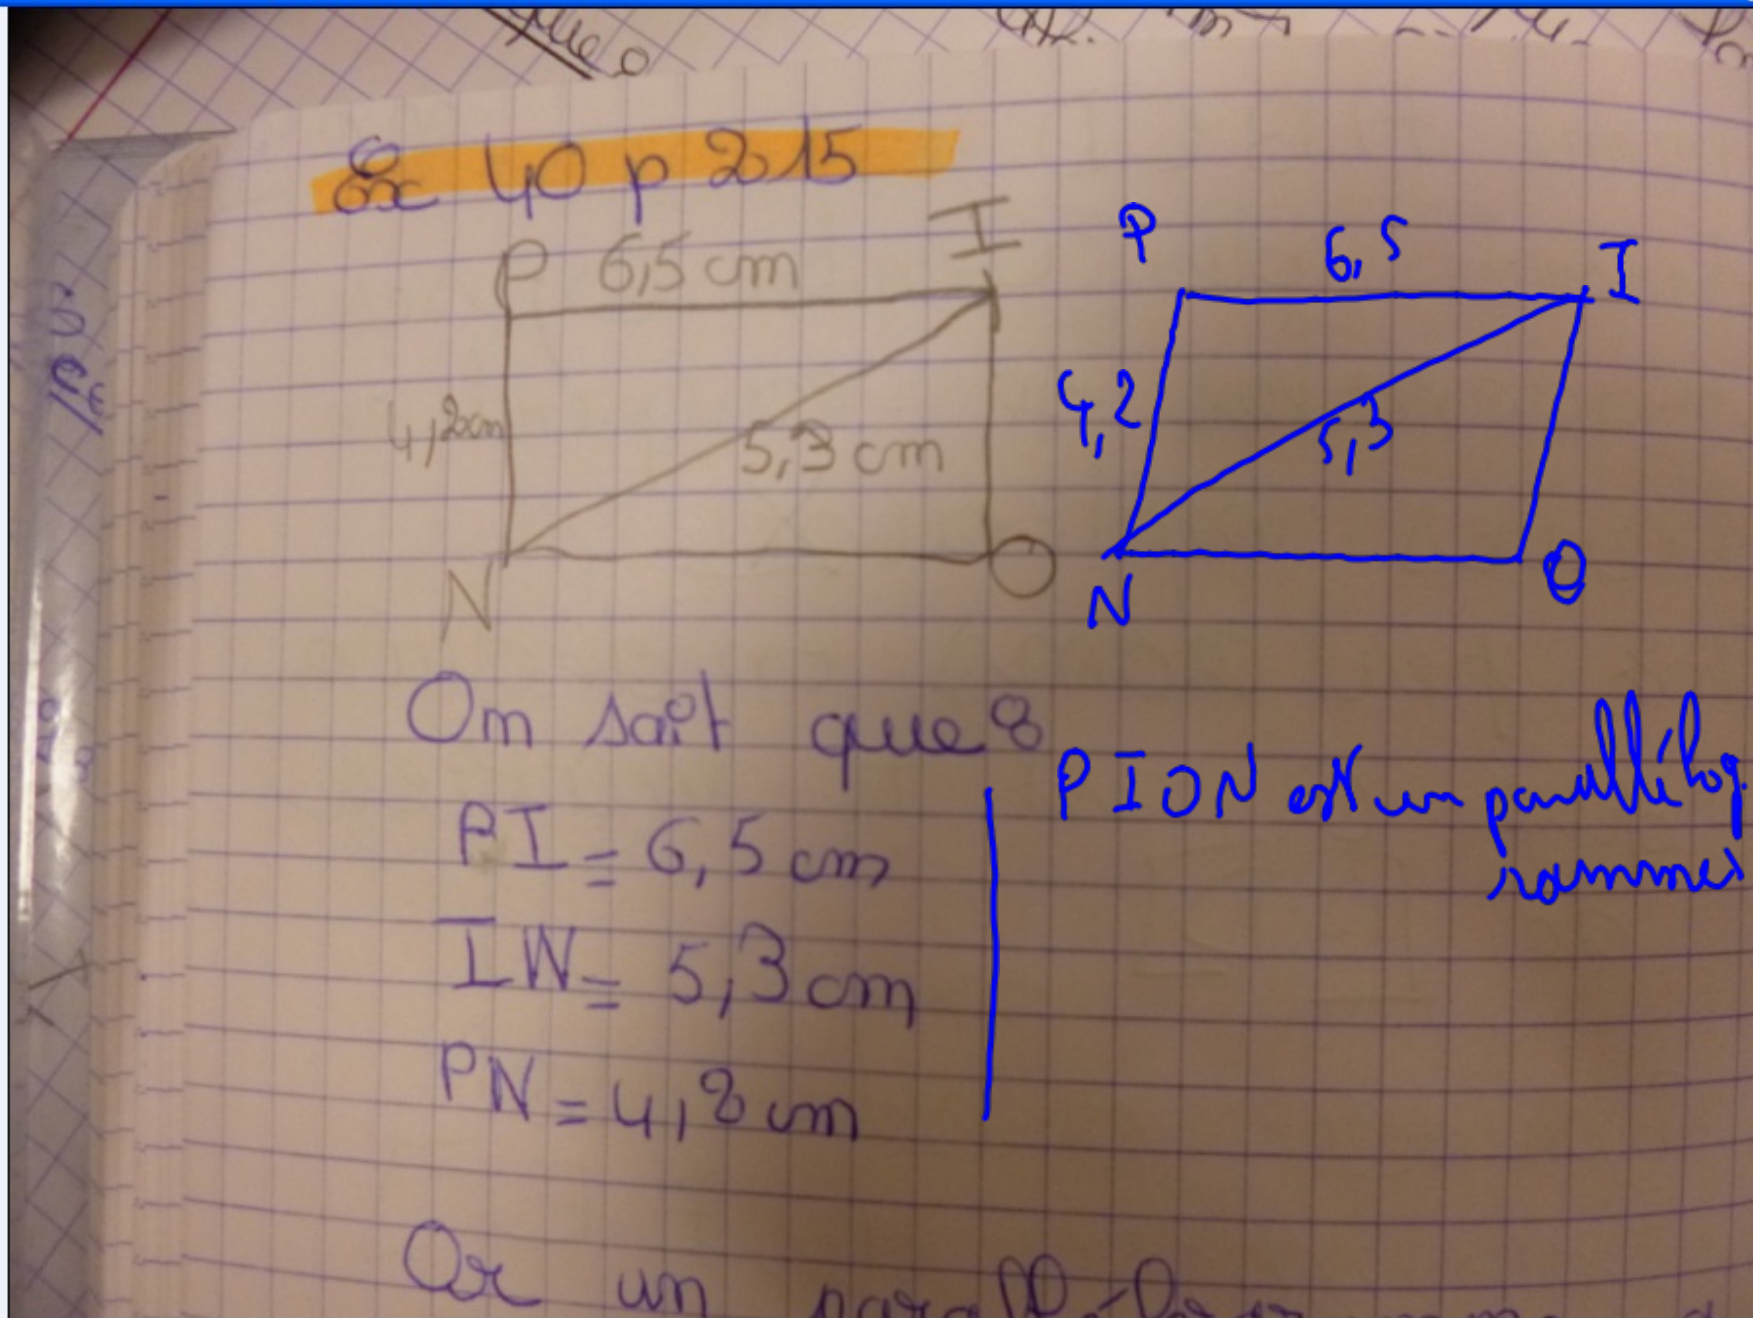 Ex 40 p 215
P 6,5 cm I
4,2cm
5,3 cm
N O
P 6,5 I
4,2
5,3
N O
On sait que :
PI = 6,5 cm
IN = 5,3 cm
PN = 4,2 cm
PION est un parallélog
rammes
Or un